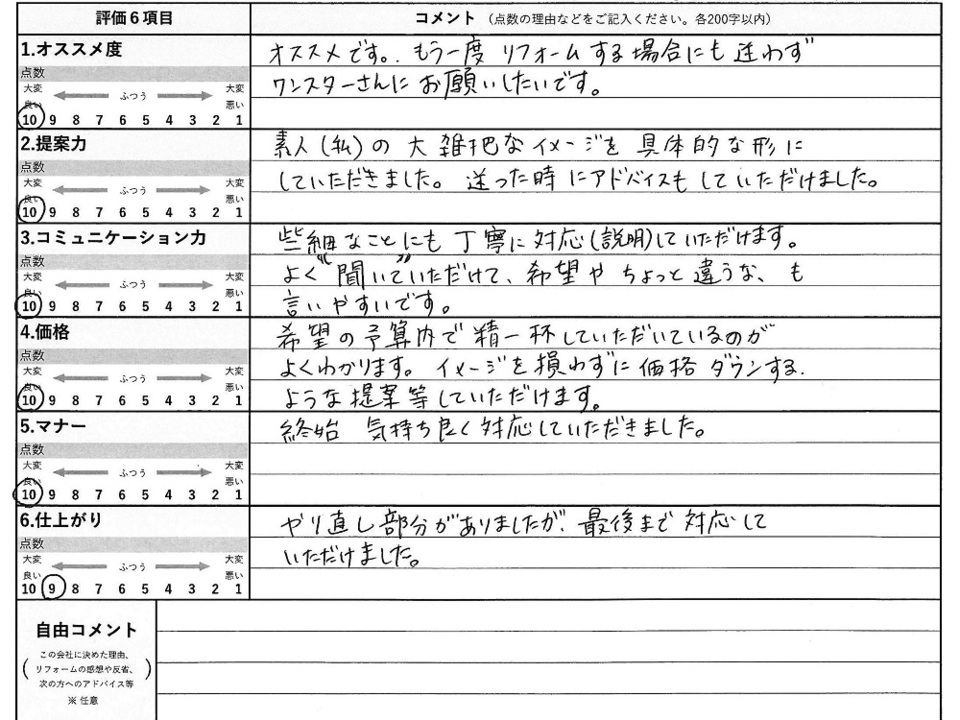 評価6項目
コメント（点数の理由などをご記入ください。各200字以内）
1.オススメ度
点数
大変良い ふつう 大変悪い
10 9 8 7 6 5 4 3 2 1
オススメです。もう一度 リフォームする場合にも迷わず
ワンスターさんにお願いしたいです。
2.提案力
点数
大変良い ふつう 大変悪い
10 9 8 7 6 5 4 3 2 1
素人(私)の 大雑把なイメージを 具体的な形に
していただきました。迷った時にアドバイスもしていただけました。
3.コミュニケーション力
点数
大変良い ふつう 大変悪い
10 9 8 7 6 5 4 3 2 1
些細なことにも丁寧に対応(説明)していただけます。
よく“聞いて”いただけて、希望やちょっと違うな、も
言いやすいです。
4.価格
点数
大変良い ふつう 大変悪い
10 9 8 7 6 5 4 3 2 1
希望の予算内で精一杯していただいているのが
よくわかります。イメージを損わずに価格ダウンする
ような提案等していただけます。
5.マナー
点数
大変良い ふつう 大変悪い
10 9 8 7 6 5 4 3 2 1
終始 気持ち良く対応していただきました。
6.仕上がり
点数
大変良い ふつう 大変悪い
10 9 8 7 6 5 4 3 2 1
やり直し部分がありましたが、最後まで対応して
いただけました。
自由コメント
(この会社に決めた理由、
リフォームの感想や反省、
次の方へのアドバイス等)
※任意